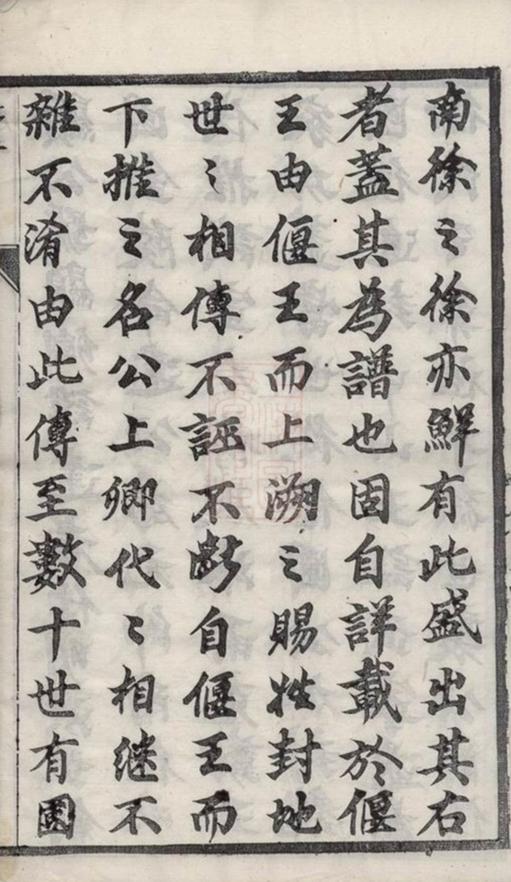 南徐之徐亦鮮有此盛出其右
者蓋其為譜也固自詳載於偃
王由偃王而上溯之賜姓封地
世〻相傳不誣不斷自偃王而
下推之名公上卿代〻相继不
雜不淆由此傳至數十世有國